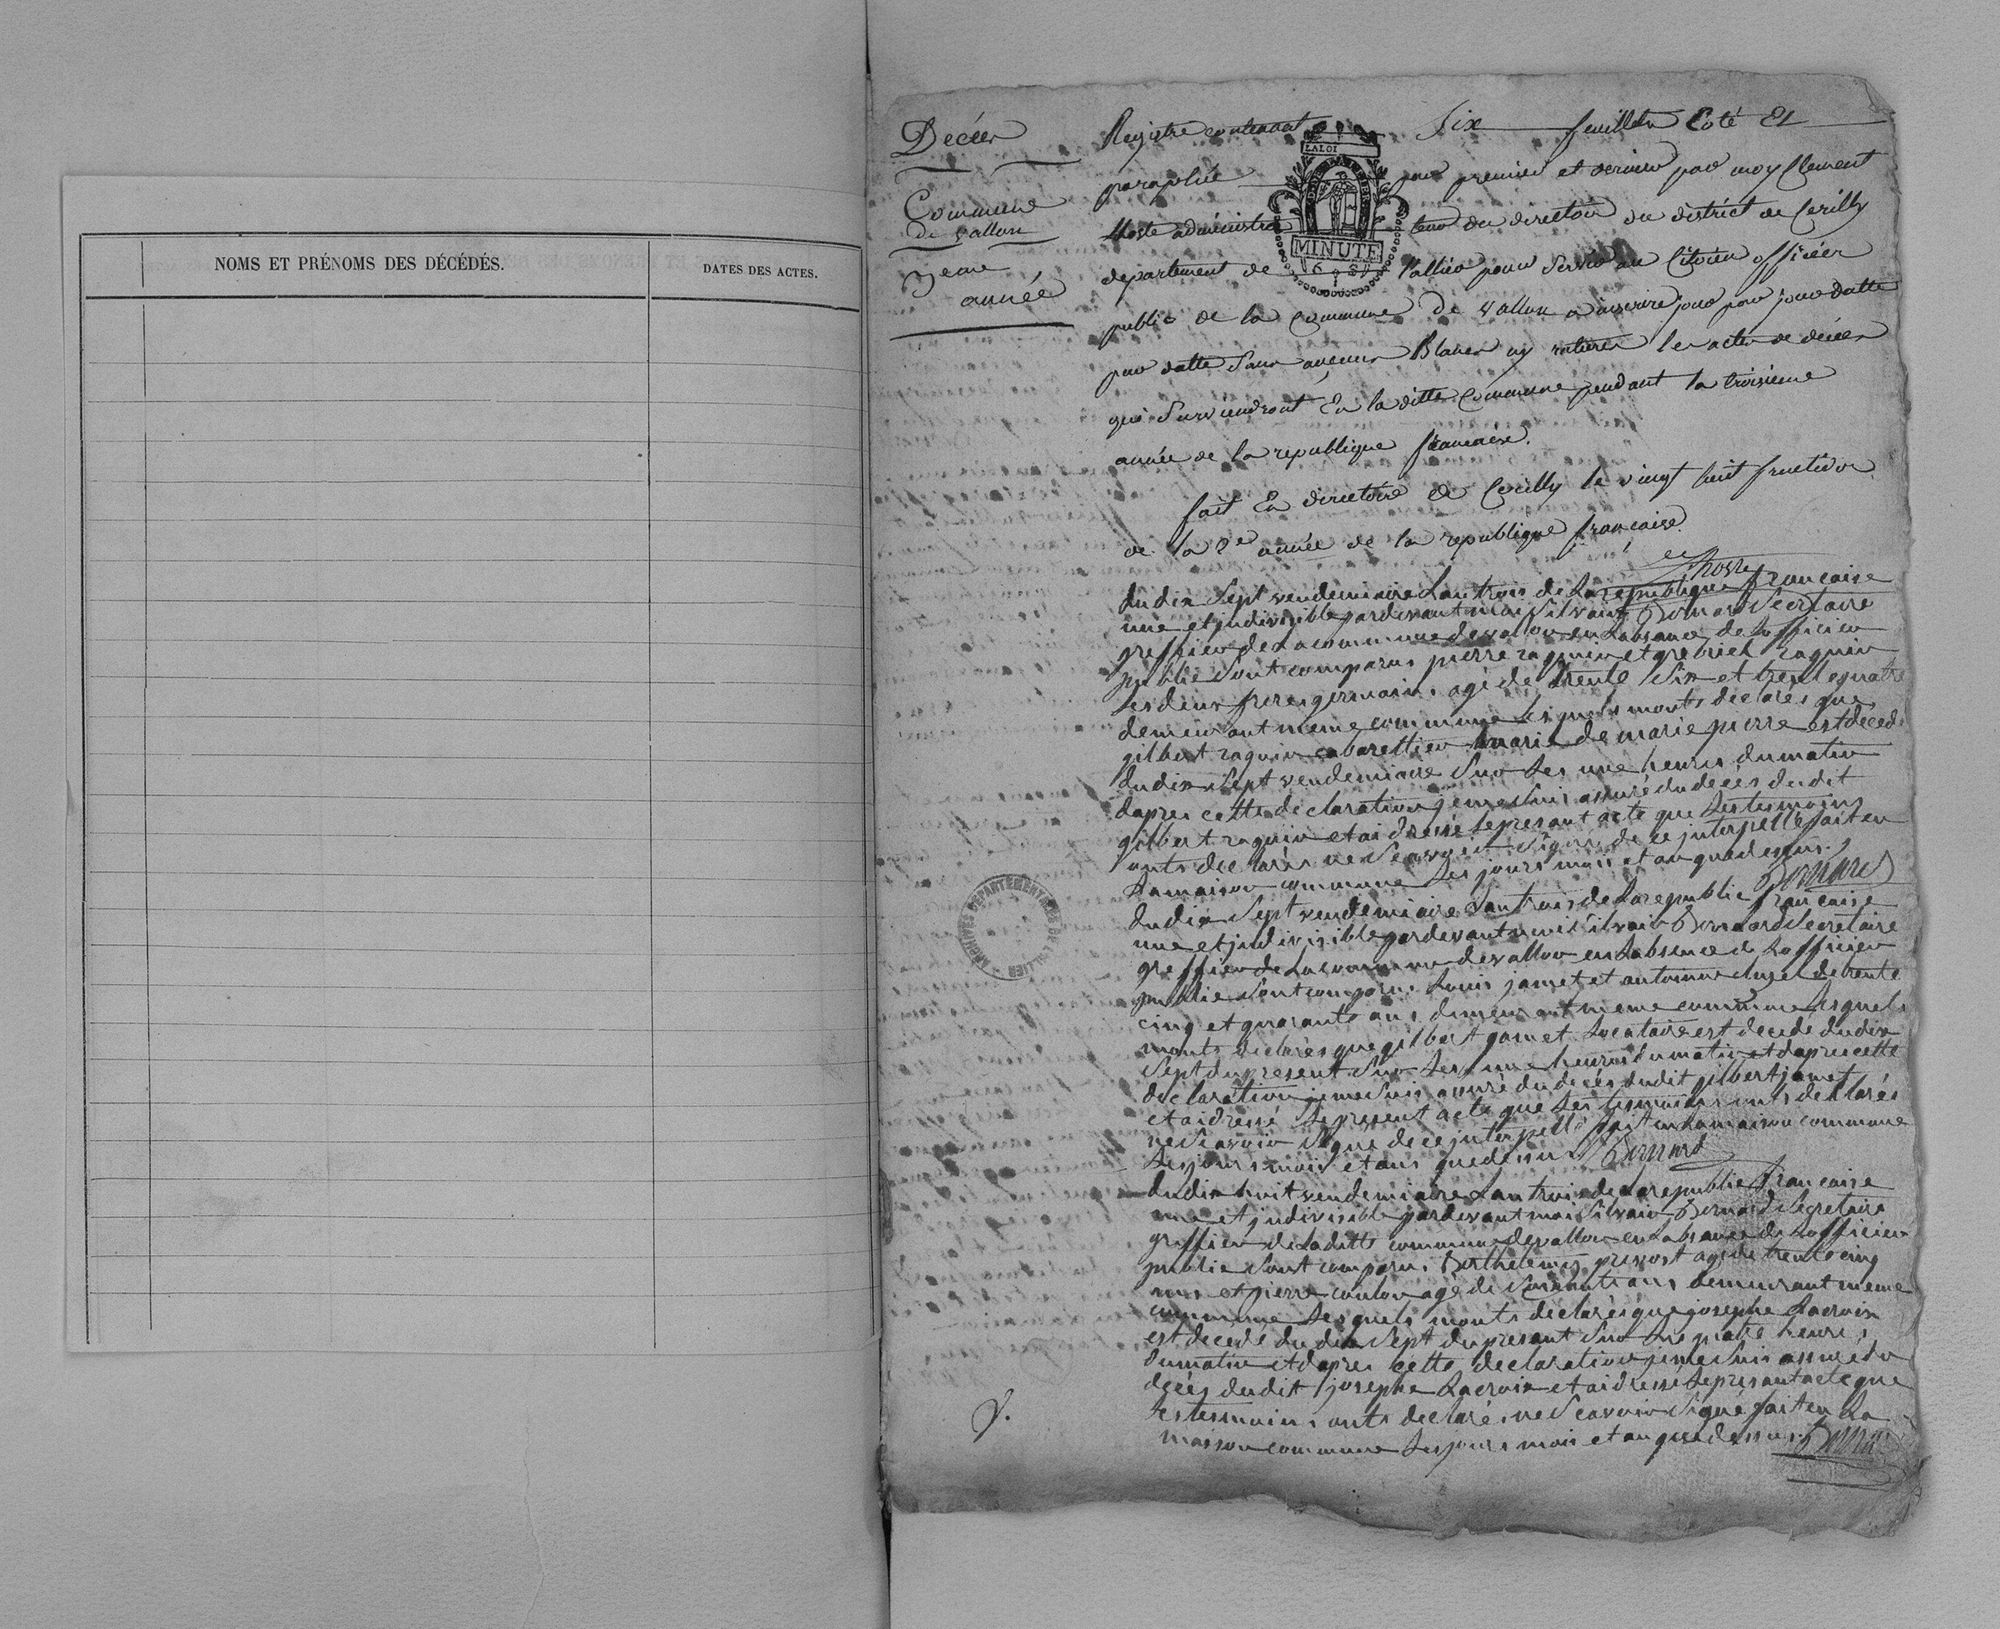 NOMS ET PRÉNOMS DES DÉCÉDÉS.
DATES DES ACTES.
ARCHIVES DEPARTEMENTALES DE L'ALLIER
Decées
Commune
de vallon
3eme
année
LALOI
MINUTE
Registre contenant Six feuillets Coté Et
paraphé par premier et dernier par moy Clement
administrateur du directoir du district de Cerilly
departement de l'allier pour Servir au Citoien officier
public de la Commune de vallon a inscrire jour par jour datte
par datte Sans aucuns Blancs ny ratures les actes de décées
qui Surviendront En la ditte Commune pendant la troisieme
année de la republique francaise.
fait En directoire de Cerilly le vingt huit fructidor
de la 2e année de la republique française.
du dix Sept vendemiaire Lan trois de La republique francaise
une et judivisible pardevant moi Silvain Bernard Secretaire
greffier de La commune de vallon en Labsance de Lofficier
publie Sont comparus pierre raquin et gebriel raquin
Les deux freres germains agé de trente Six et trente quatre
demeurant meme commune Lesquels monts declarés que
gilbert raquin cabarettier marie de marie pierre est decedé
du dix Sept vendemiaire Sur Les une heures du matin
dapres cette declaration je me Suis assuré du deces dudit
gilbert raquin et ai dressé Le presant acte que Les tesmoins
onts declarés ne Scavoir Signé de ce interpellé fait en
La maison commune Les jours mois et an que dessus. Bernard
du dix Sept vendemiaire Lan trois de La republie francaise
une et judivisible pardevant moi Silvain Bernard Secretaire
greffier de La commune de vallon en Labsence de Lofficier
publie Sont comparus Louis jamet et antoinne de trente
cinq et quarante ans demeurant meme commune Lesquels
monts declarés que gilbert jamet Locataire est decede du dix
Sept du present Sur Les une heures du matin et dapres cette
declaration je me Suis assuré du decés dudit gilbert jamet
et ai dressé Le present acte que Les tesmoins onts declarés
ne Scavoir Signe de ce interpellé fait en La maison commune
Les jours mois et ans que dessus Bernard
du dix huit vendemiaire Lan trois de La republie francaise
une et judivisible pardevant moi Silvain Bernard Secretaire
greffier de Laditte commune de vallon en Labsance de Lofficier
publie Sont comparus Berthelemis prevost agé de trente cinq
ans et pierre coulon agé de ans demeurant meme
commune Lesquels monts declarés que josephe Lacroix
est decedé du dix Sept du presant Sur Les quatre heures
du matin et dapres cette declaration je me Suis assuré du
decés dudit josephe Lacroix et ai dressé Le presant acte que
Les tesmoins onts declarés ne Scavoir Signé fait en La
maison commune Les jours mois et an que dessus. Bernard